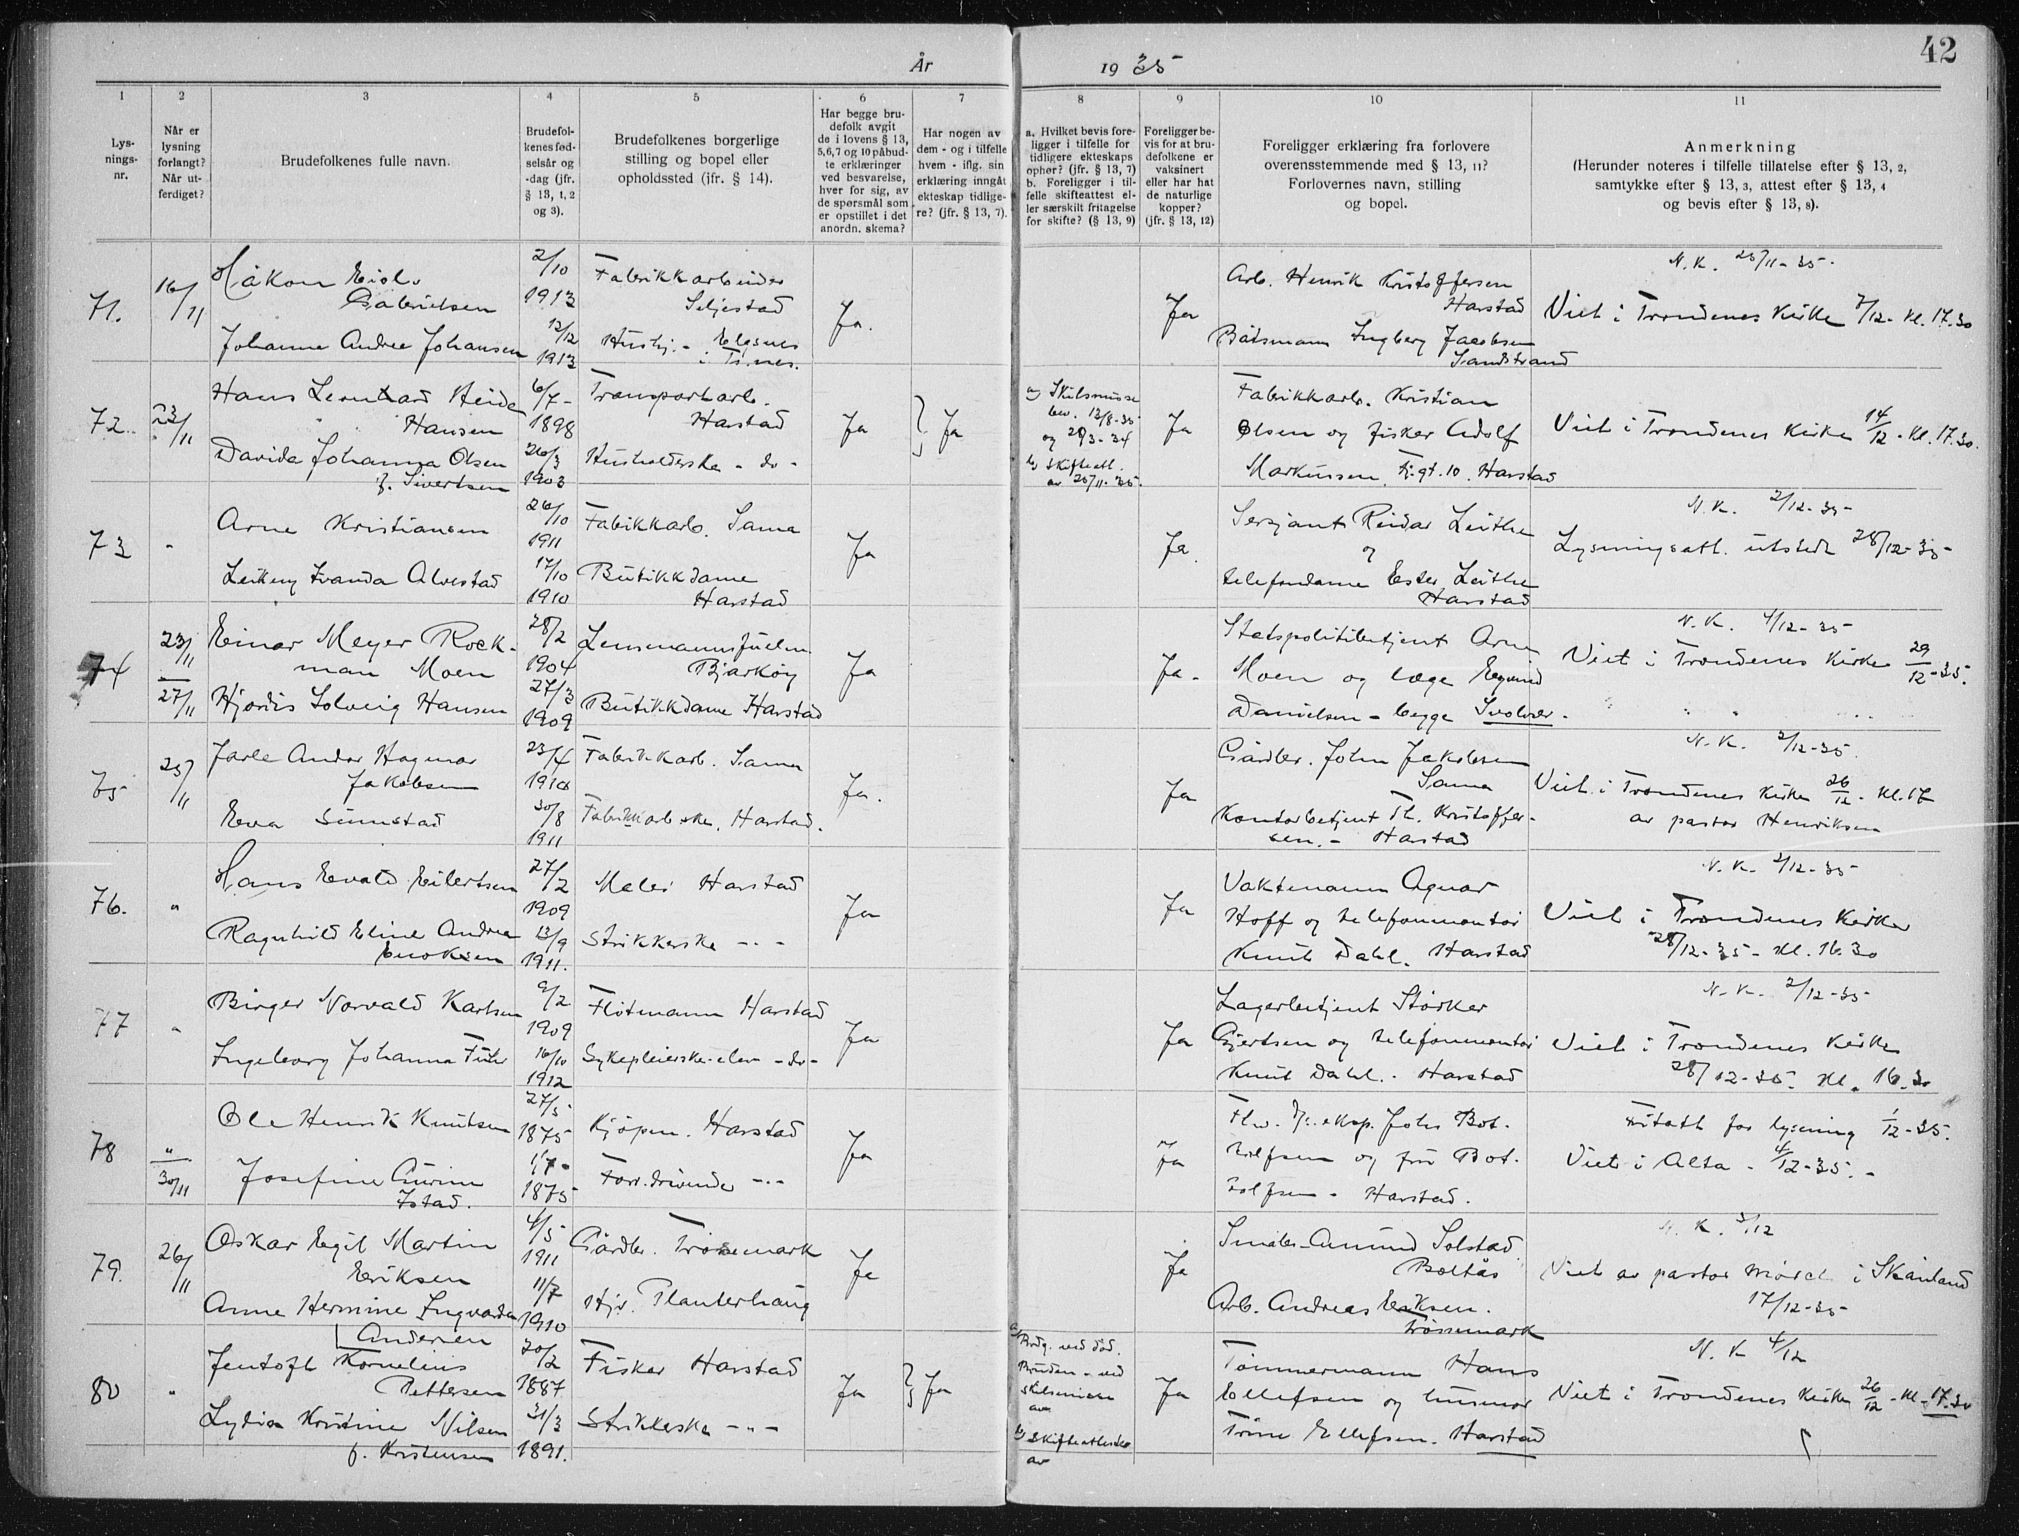 42
År 1935
1 2 3 4 5 6 7 8 9 10 11
Lysningsnr.
Når er lysning forlangt? Når utferdiget?
Brudefolkenes fulle navn.
Brudefolkenes fødselsår og -dag (jfr. § 13, 1, 2 og 3).
Brudefolkenes borgerlige stilling og bopel eller opholdssted (jfr. § 14).
Har begge brudefolk avgit de i lovens § 13, 5,6,7 og 10 påbudte erklæringer ved besvarelse, hver for sig, av de spørsmål som er opstillet i det anordn. skema?
Har nogen av dem - og i tilfelle hvem - iflg. sin erklæring inngått ekteskap tidligere? (jfr. § 13, 7).
a. Hvilket bevis foreligger i tilfelle for tidligere ekteskaps ophør? (jfr. § 13, 7) b. Foreligger i tilfelle skifteattest eller særskilt fritagelse for skifte? (§ 13, 9)
Foreligger bevis for at brudefolkene er vaksinert eller har hat de naturlige kopper? (jfr. § 13, 12)
Foreligger erklæring fra forlovere overensstemmende med § 13, 11? Forlovernes navn, stilling og bopel.
Anmerkning (Herunder noteres i tilfelle tillatelse efter § 13, 2, samtykke efter § 13, 3, attest efter § 13, 4 og bevis efter § 13, 8).
71. 16/11
Håkon
Gabrielsen
2/10 1913
Fabrikkarbeider
Seljestad
Johanne Andrea Johansen
12/12 1913
Hushj. - Elgsnes
i Tr.nes.
Ja.
Ja
Arb. Henrik Kristoffersen
Harstad
Båtsmann Ingberg Jacobsen
Sandstrand
N.K. 25/11-35.
Viet i Trondenes Kirke 7/12- Kl. 17.30
72. 23/11
Hans Leonhard
Hansen
6/7- 1898
Transportarb.
Harstad
Davida Johanna Olsen
f. Sivertsen
26/3 1903
Husholderske - do -
Ja
Ja
a) Skilsmisse
bev. 12/8-35
og
b) Skifteatt.
av 25/11-35.
Ja
Fabrikkarb. Kristian
Olsen og fisker Adolf
Markussen, Harstad
Viet i Trondenes Kirke 14/12 - Kl. 17.30.
73 "
Arne Kristiansen
26/10 1911
Fabrikkarb. Sama
Alvestad
17/10 1910
Butikkdame
Harstad
Ja
Ja.
Sersjant Reidar Leithe
og
telefondame Ester Leithe
Harstad
N.K. 2/12-35-
Lysningsatt. utstedt 28/12-35-
74 23/11
27/11
Einar Meyer Rock-
man Moen
28/2 1904
Lensmannsfullm.
Bjarkøy
Hjørdis Solveig Hansen
27/3 1909
Butikkdame Harstad
Ja
Ja.
Statspolitibetjent Arne
Moen og læge
Danielsen - begge Svolvær.
N.K. 4/12-35
Viet i Trondenes Kirke 29/12-35.
75 25/11
Jarle Andor Hagmar
Jakobsen
23/4
Fabrikkarb. Sama
Eva Sunnstad
30/8 1911
Fabrikkarb.ske. Harstad.
Ja.
Ja
Gårdbr. John Jakobsen
Sama
Kontorbetjent Th. Kristoffer-
sen. - Harstad
N.K. 2/12-35.
Viet i Trondenes Kirke 26/12- Kl. 17
av pastor Henriksen
76. "
Hans Evald Eilertsen
27/2 1909
Maler Harstad
Ragnhild Eline Andrea
Enoksen
13/9 1911.
Strikkerske - " -
Ja
Ja
Vaktmann Agnar
Hoff og telefonmontør
Knut Dahl. Harstad
N.K. 2/12-35
Viet i Trondenes Kirke
28/12-35- Kl. 16.30
77 "
Birger Norvald Karlsen
9/2 1909
Fløtmann Harstad
Ingeborg Johanna
16/10 1912
Sykepleierske-elev - do -
Ja
Ja
Lagerbetjent Størker
Gjertsen og telefonmontør
Knut Dahl. - Harstad
N.K. 2/12-35
Viet i Trondenes Kirke
28/12-35. Kl. 16.30
78 " 30/11
Ole Henrik Knutsen
27/5 1875
Kjøpm. Harstad
Josefine
Istad.
1/7- 1875
Forr.drivende - " -
Ja
Ja
Johs Bot-
olfsen og fru Bot-
olfsen - Harstad.
for lysning 1/12-35.
Viet i Alta - 4/12-35. -
79. 26/11
Oskar Egil Martin
Eriksen
4/5 1911
Gårdbr. Trøssemark
Anne Hermine Ingvarda
Andersen
11/7 1910
Hjv. Planterhaug
Ja
Ja
Småbr. Amund Solstad
Boltås
Arb. Andreas Eriksen.
Trøssemark
N.K. 3/12
Viet av pastor i Skånland
17/12-35
80 "
Jentoft Kornelius
Pettersen
20/2 1887
Fisker Harstad
Lydia Kristine Nilsen
f. Kristensen
31/3 1891.
Strikkerske - " -
Ja
Ja
a) Brdg. ved død.
Bruden - ved
skilsmisse
av
b) Skifteattester
av
Ja
Tømmermann Hans
Ellefsen og husmor
Trine Ellefsen. Harstad
N.K. 4/12
Viet i Trondenes Kirke 26/12 - Kl. 17.30